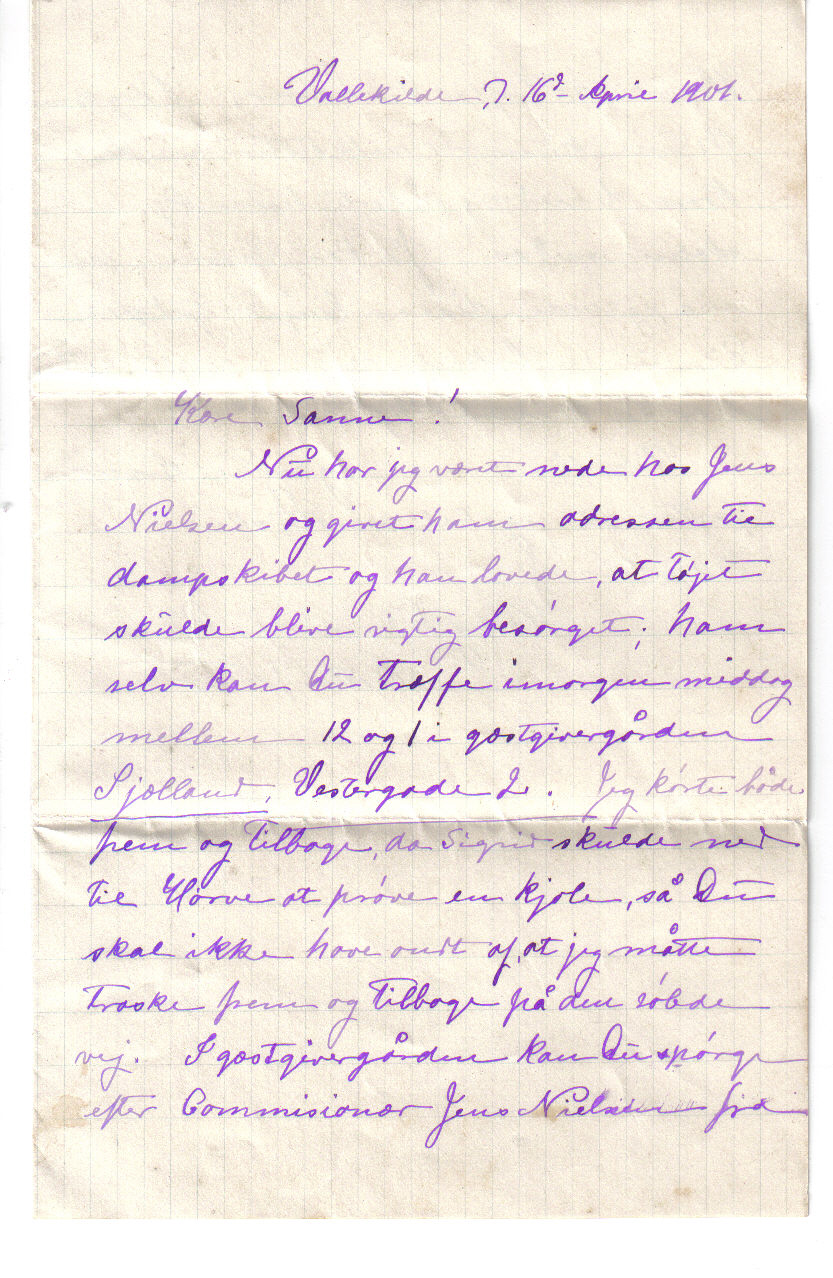 Vallekilde, d. 16d April 1901.
Kære Sanne!
Nu har jeg været nede hos Jens
Nielsen og givet ham adressen til
dampskibet og han lovede, at tøjet
skulde blive rigtig besørget; ham
selv kan Du træffe imorgen middag
mellem 12 og 1 i gæstgivergården
Sjælland, Vestergade 2. Jeg kørte både
frem og tilbage, da Sigrid skulde ned
til Hørve at prøve en kjole, så Du
skal ikke have ondt af, at jeg måtte
traske frem og tilbage på den sølede
vej. I gæstgivergården kan Du spørge
efter Commisionær Jens Nielsen fra